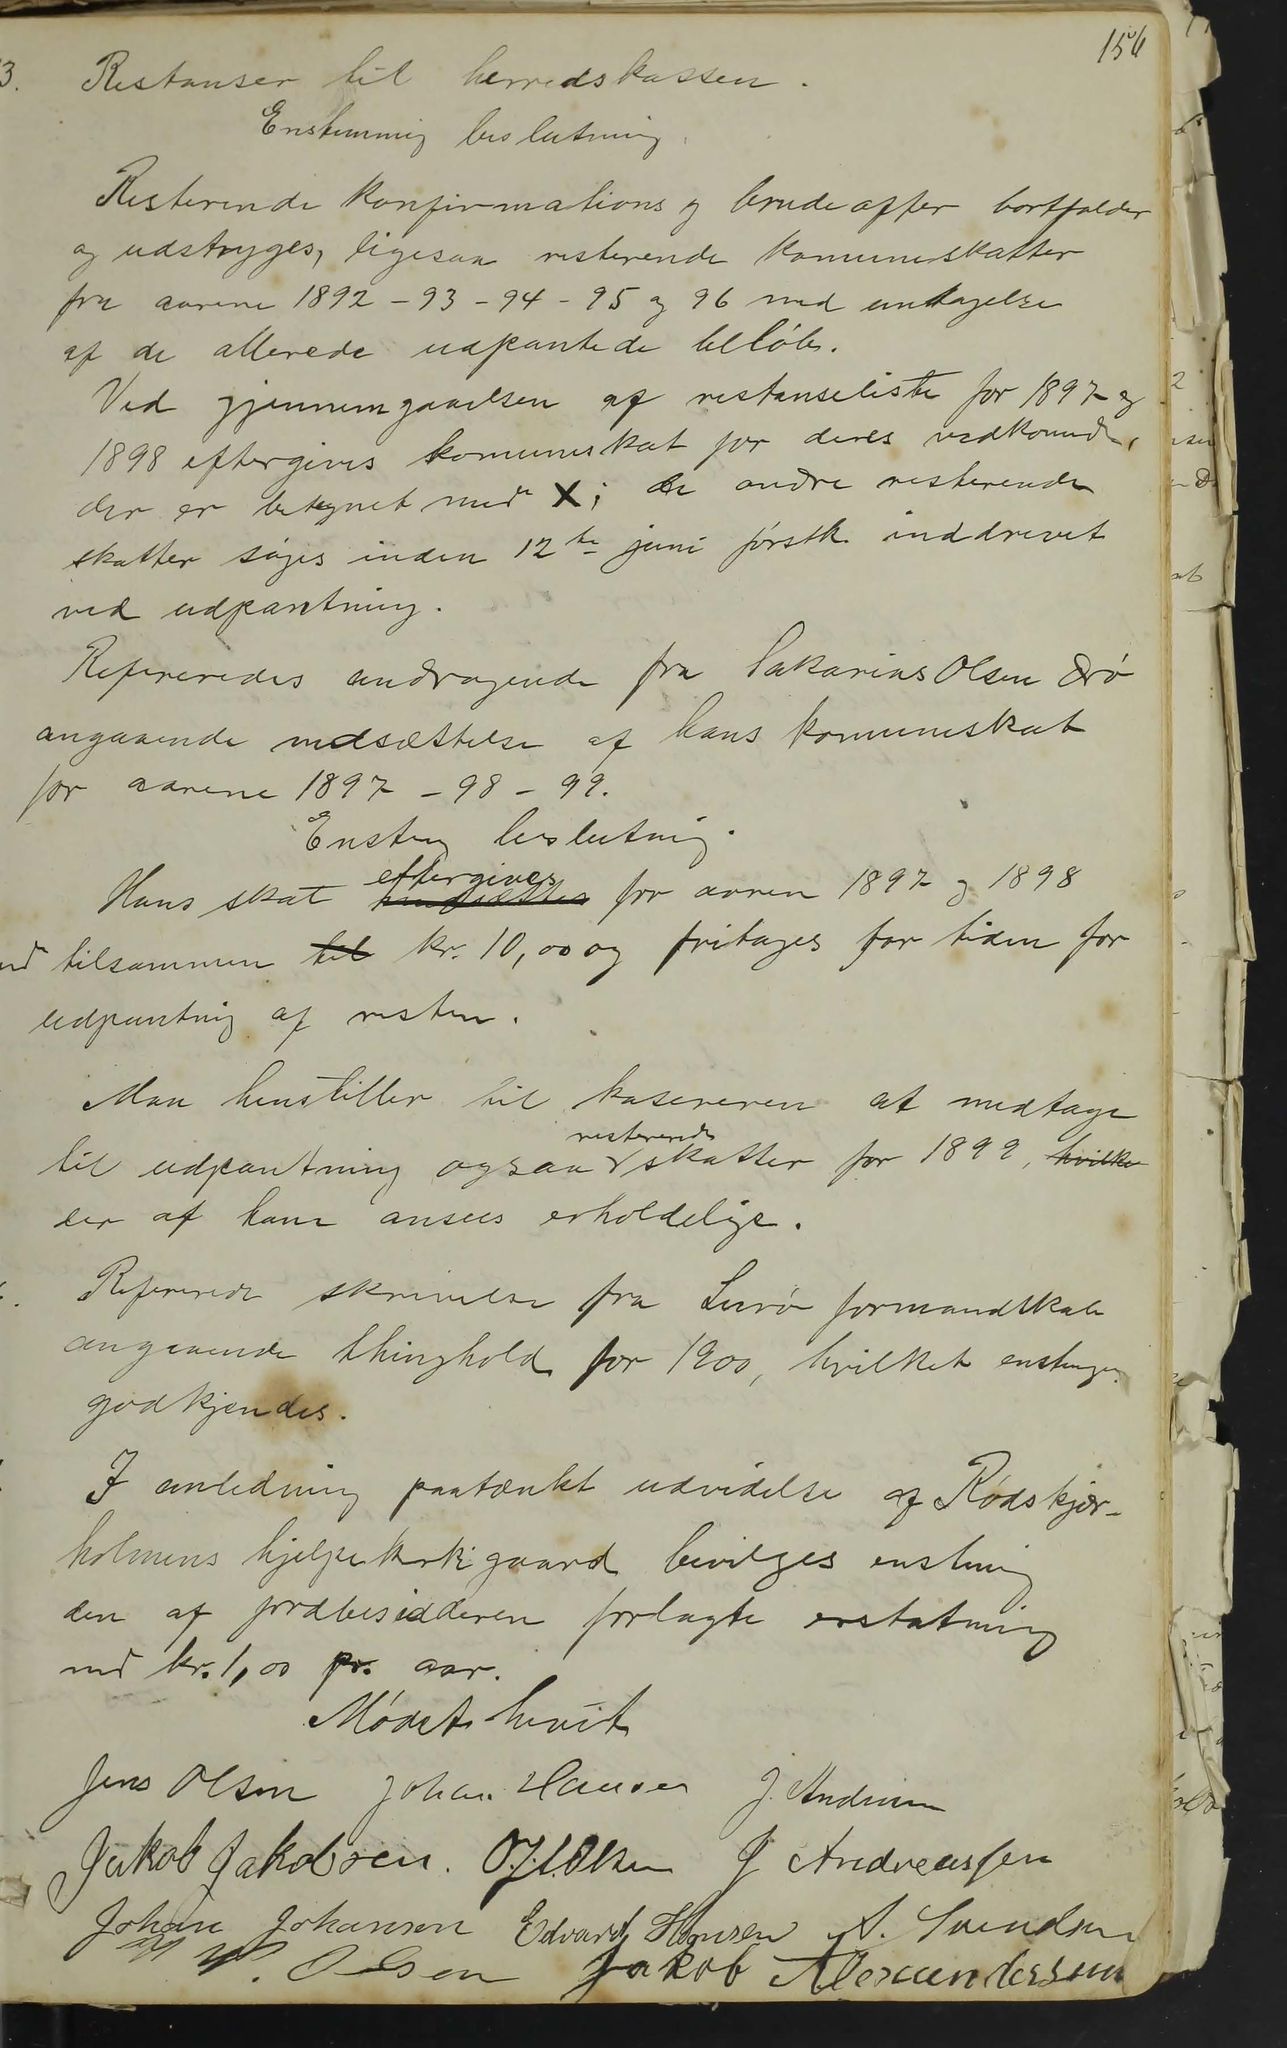 156
3. Restanser til herredskassen.
Enstemmig beslutning.
Resterende konfirmations og brudeoffer bortfalder
og udstryges, ligesaa resterende komuneskatter
fra aarene 1892 - 93 - 94 - 95 og 96 med undtagelse
af de allerede udpantede belöb.
Ved gjennemgaaelsen af restanseliste for 1897 og
1898 eftergives komuneskat for deres vedkomende,
der er betegnet med X; de andre resterende
skatter söges inden 12te juni förstk. inddrevet
ved udpantning.
Refereredes andragende fra Sakarias Olsen
angaaende nedsættelse af hans komuneskat
for aarene 1897 - 98 - 99.
Enstg beslutnig.
Hans skat eftergives for aaren 1897 og 1898
tilsammen til kr. 10,00 og fritages for tiden for
udpantnig af resten.
Man henstiller til kasereren at medtage
til udpantning ogsaa resterende skatter for 1899, hvilke
der af ham ansees erholdelige.
Refererede skrivelse fra Lurö formandskab
angaaende thinghold for 1900, hvilket
godkjendes.
I anledning paatænkt udvidelse af Rödskjær-
holmens hjelpekirkegaard bevilges enstemig
den af jordbesidderen forlagte erstatning
med kr. 1,00 pr. aar.
Mödet hævet
Jens Olsen Johan Hansen J. Andersen
Jakob Jakobsen. Olsen J Andreassen
Johan Johansen Edvard Hansen A. Svendsen
Olsen Jakob Alexandersen